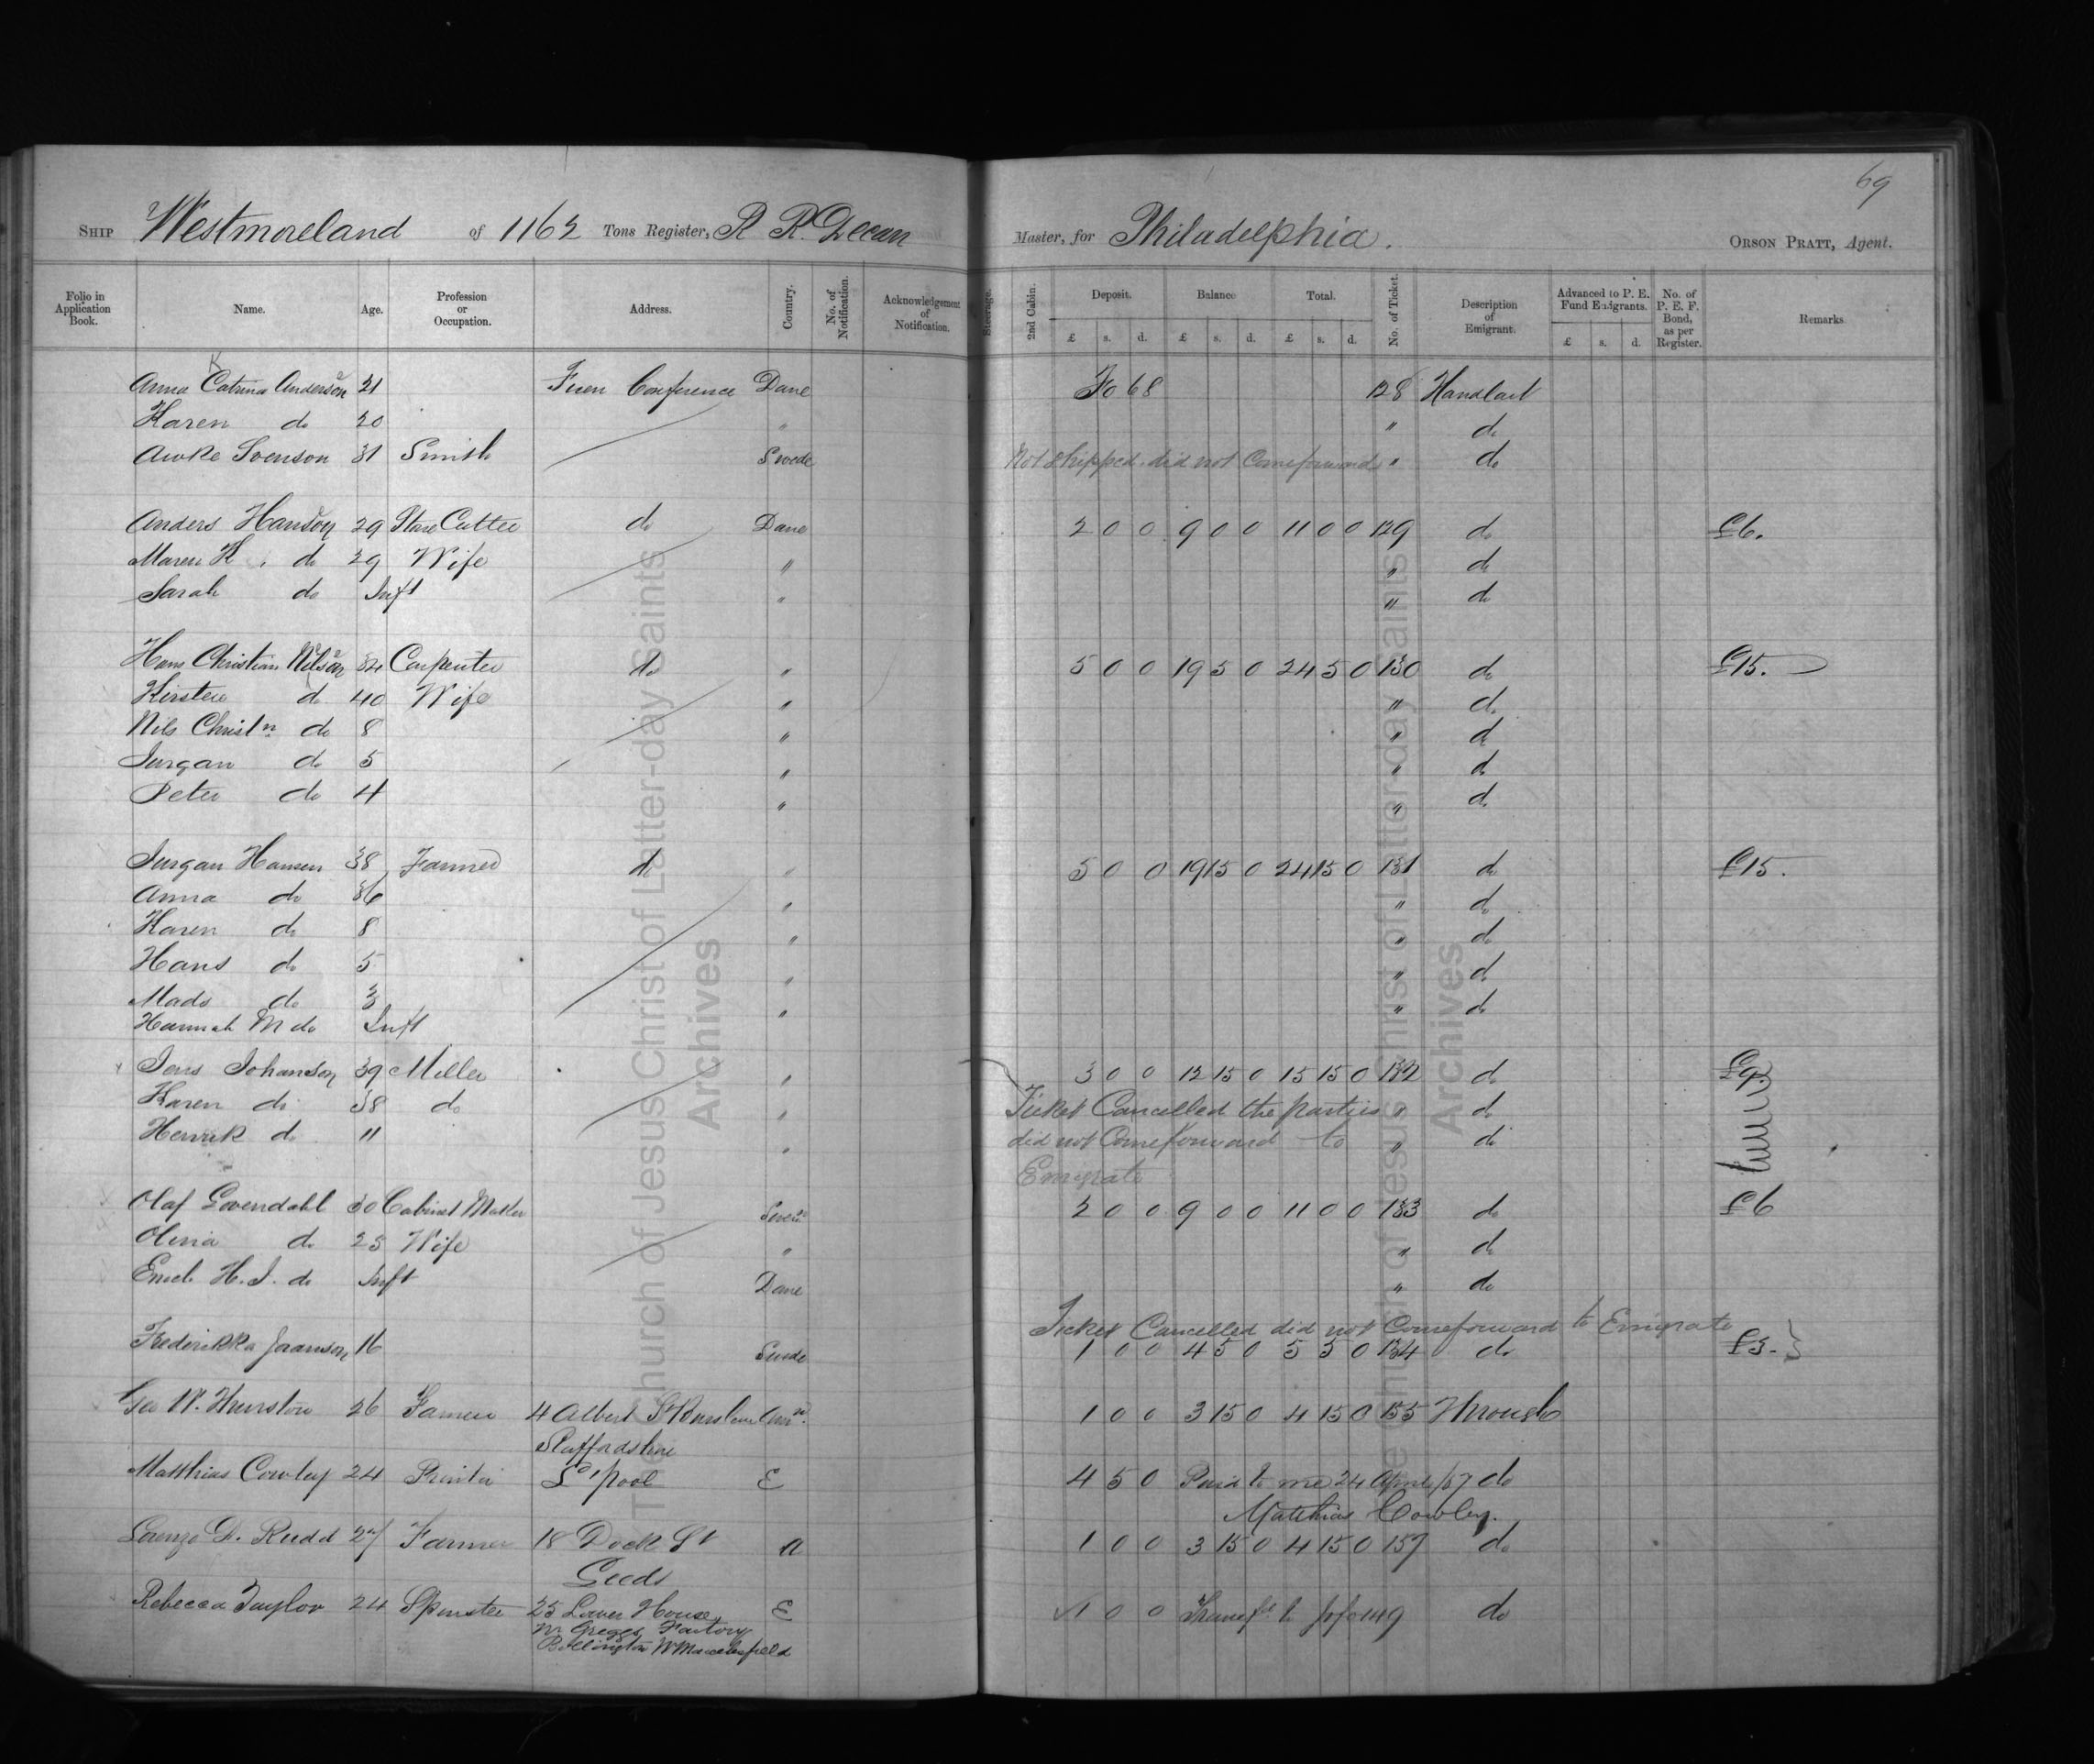 69
Ship Westmoreland of 1162 Tons Register, R R. Decan Master, for Philadelphia. Orson Pratt, Agent.
Folio in Application Book. Name. Age. Profession or Occupation. Address. Country. No. of Notification. Acknowledgement of Notification. Steerage. 2nd Cabin. Deposit. £ s. d. Balance £ s. d. Total. £ s. d. No. of Ticket. Description of Emigrant. Advanced to P. E. Fund Emigrants. £ s. d. No. of P. E. F. Bond, as per Register. Remarks
Anna Catrina Anderson 21 Fuen Conference Dane Fo 68 128 Handcart
Karen do 20 " " do
Awke Svenson 31 Smith Swede Not Shipped. did not Comeforward " do
Anders Hanson 29 Stone Cutter do Dane 2 0 0 9 0 0 11 0 0 129 do £6.
Maren K. do 29 Wife " " do
Sarah do Inft " " do
Hans Christian Nilson 34 Carpenter do " 5 0 0 19 5 0 24 5 0 130 do £15.
Kirsten do 40 Wife " " do
Nils Christn do 8 " " do
Jurgan do 5 " " do
Peter do 4 " " do
Jurgan Hansen 38 Farmer do " 5 0 0 19 15 0 24 15 0 131 do £15.
Anna do 36 " " do
Karen do 8 " " do
Hans do 5 " " do
Mads do 3 " " do
Hannah M do Inft
Jens Johanson 39 Miller " 3 0 0 12 15 0 15 15 0 132 do £9.
Karen do 38 do " Ticket Cancelled the parties " do
Henrik do 11 " did not Comeforward to " do
Emigrate
Olaf Lovendahl 30 Cabinet Maker 2 0 0 9 0 0 11 0 0 133 do £6
Olivia do 25 Wife " " do
H. J. do Inft Dane " do
Ticket Cancelled did not Comeforward to Emigrate
Frederikka 16 Swede 1 0 0 4 5 0 5 5 0 134 do £3.
Geo W. Thurston 26 Farmer 4 Albert St Burslem Amn. 1 0 0 3 15 0 4 15 0 155 Through
Staffordshire
Matthias Cowley 24 Printer L'pool E 4 5 0 Paid to me 24 April/57 do
Matthias Cowley.
Lorenzo D. Rudd 27 Farmer 18 Dock St A 1 0 0 3 15 0 4 15 0 157 do
Leeds
Rebecca Taylor 24 Spinster 25 Lower House, E 1 0 0 Transfd to fo 149 do
Mr Greggs Factory
Bollington Nr Macclesfield
The Church of Jesus Christ of Latter-day Saints
Archives
The Church of Jesus Christ of Latter-day Saints
Archives